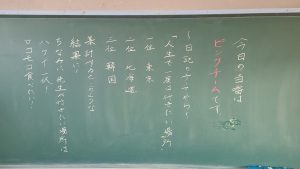 今日の当番は
ピンクチームです
〜日記のテーマから〜
「人生で一度は行きたい場所」
一位 東京
二位 北海道
三位 韓国
集計するとこのような
結果に!
ちなみに先生が行きたい場所は
ハワイ一択!
ロコモコ食べたい!